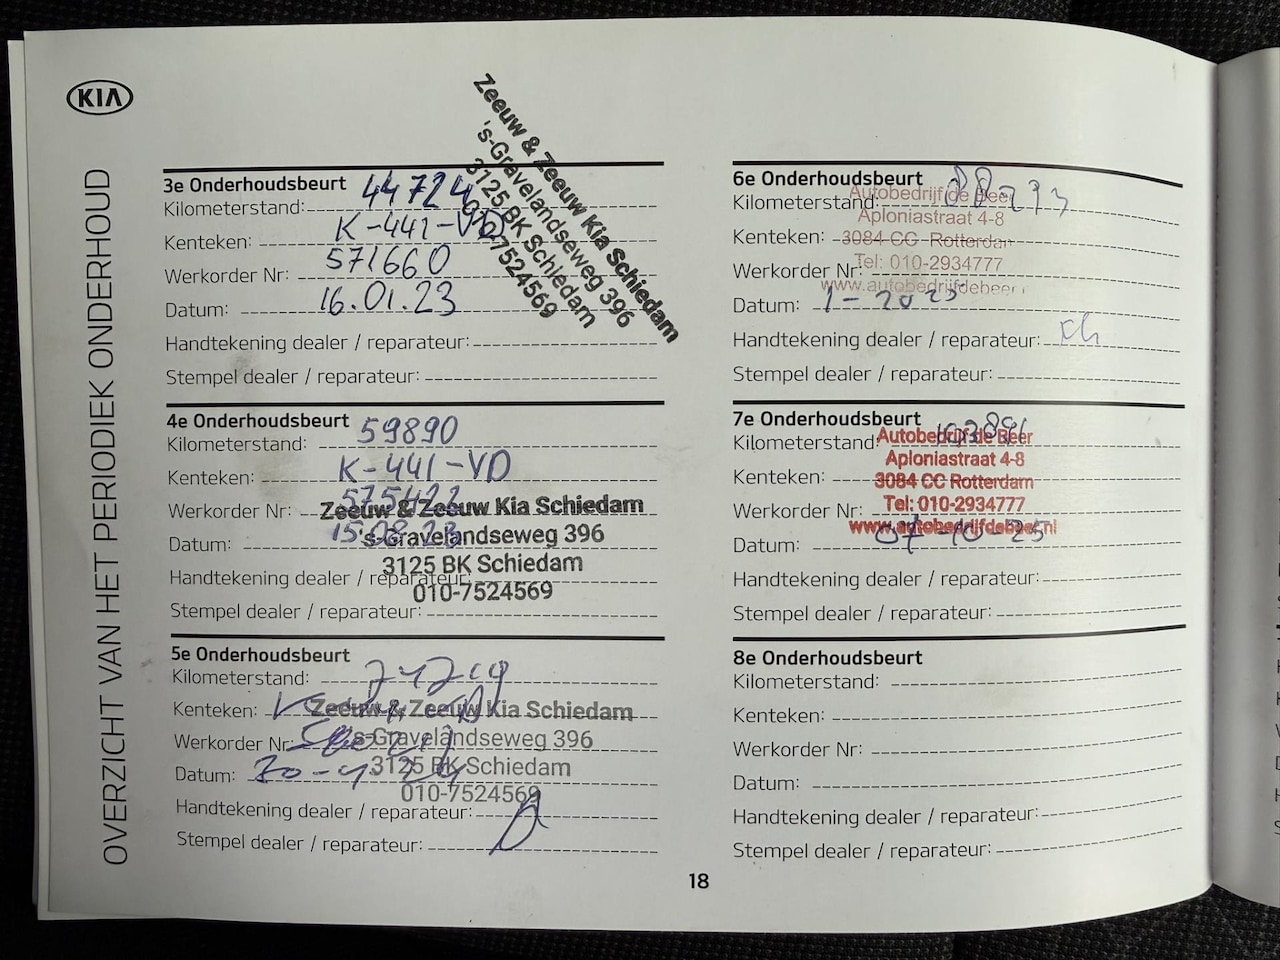 KIA
OVERZICHT VAN HET PERIODIEK ONDERHOUD
3e Onderhoudsbeurt
Kilometerstand: 44724
Kenteken: K-441-VD
Werkorder Nr: 571660
Datum: 16.01.23
Handtekening dealer / reparateur:
Stempel dealer / reparateur:
Zeeuw & Zeeuw Kia Schiedam
's-Gravelandseweg 396
3125 BK Schiedam
010-7524569
4e Onderhoudsbeurt
Kilometerstand: 59890
Kenteken: K-441-VD
Werkorder Nr:
Datum:
Handtekening dealer / reparateur:
Stempel dealer / reparateur:
Zeeuw & Zeeuw Kia Schiedam
's-Gravelandseweg 396
3125 BK Schiedam
010-7524569
5e Onderhoudsbeurt
Kilometerstand:
Kenteken:
Werkorder Nr:
Datum:
Handtekening dealer / reparateur:
Stempel dealer / reparateur:
Zeeuw & Zeeuw Kia Schiedam
's-Gravelandseweg 396
3125 BK Schiedam
010-7524569
6e Onderhoudsbeurt
Kilometerstand:
Kenteken:
Werkorder Nr:
Datum: 1-2025
Handtekening dealer / reparateur:
Stempel dealer / reparateur:
Autobedrijf de Beer
Aploniastraat 4-8
3084 CC Rotterdam
Tel: 010-2934777
www.autobedrijfdebeer
7e Onderhoudsbeurt
Kilometerstand:
Kenteken:
Werkorder Nr:
Datum: 07-10-25
Handtekening dealer / reparateur:
Stempel dealer / reparateur:
Autobedrijf de Beer
Aploniastraat 4-8
3084 CC Rotterdam
Tel: 010-2934777
www.autobedrijfdebeer.nl
8e Onderhoudsbeurt
Kilometerstand:
Kenteken:
Werkorder Nr:
Datum:
Handtekening dealer / reparateur:
Stempel dealer / reparateur:
18